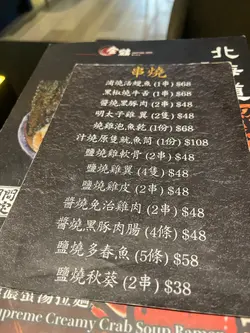 北
道
串燒
蒲燒活鰻魚 (1串) $68
黑椒燒牛舌 (1串) $68
醬燒黑豚肉 (2串) $48
明太子雞翼 (2串) $58
燒雞泡魚乾 (1份) $68
汁燒原隻魷魚筒 (1份) $108
鹽燒雞軟骨 (2串) $48
鹽燒雞翼 (2串) $48
鹽燒雞皮 (2串) $48
醬燒免治雞肉 (2串) $48
醬燒黑豚肉腸 (4條) $48
鹽燒多春魚 (5條) $58
鹽燒秋葵 (2串) $38
preme Creamy Crab Soup Ramen